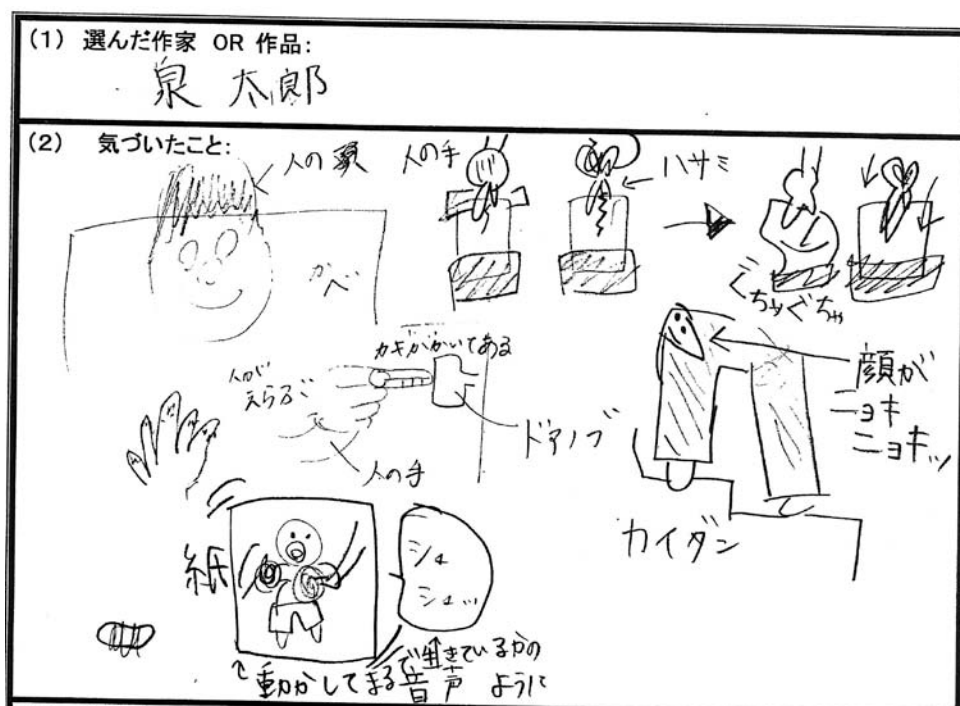 (1) 選んだ作家 OR 作品:
泉 太郎
(2) 気づいたこと:
人の頭
人の手
ハサミ
かべ
ぐちゃぐちゃ
カギがかいてある
人が
えらぶ
ドアノブ
人の手
顔が
ニョキ
ニョキッ
カイダン
紙
シュ
シュッ
動かしてまるで生きているかの
音声 ように